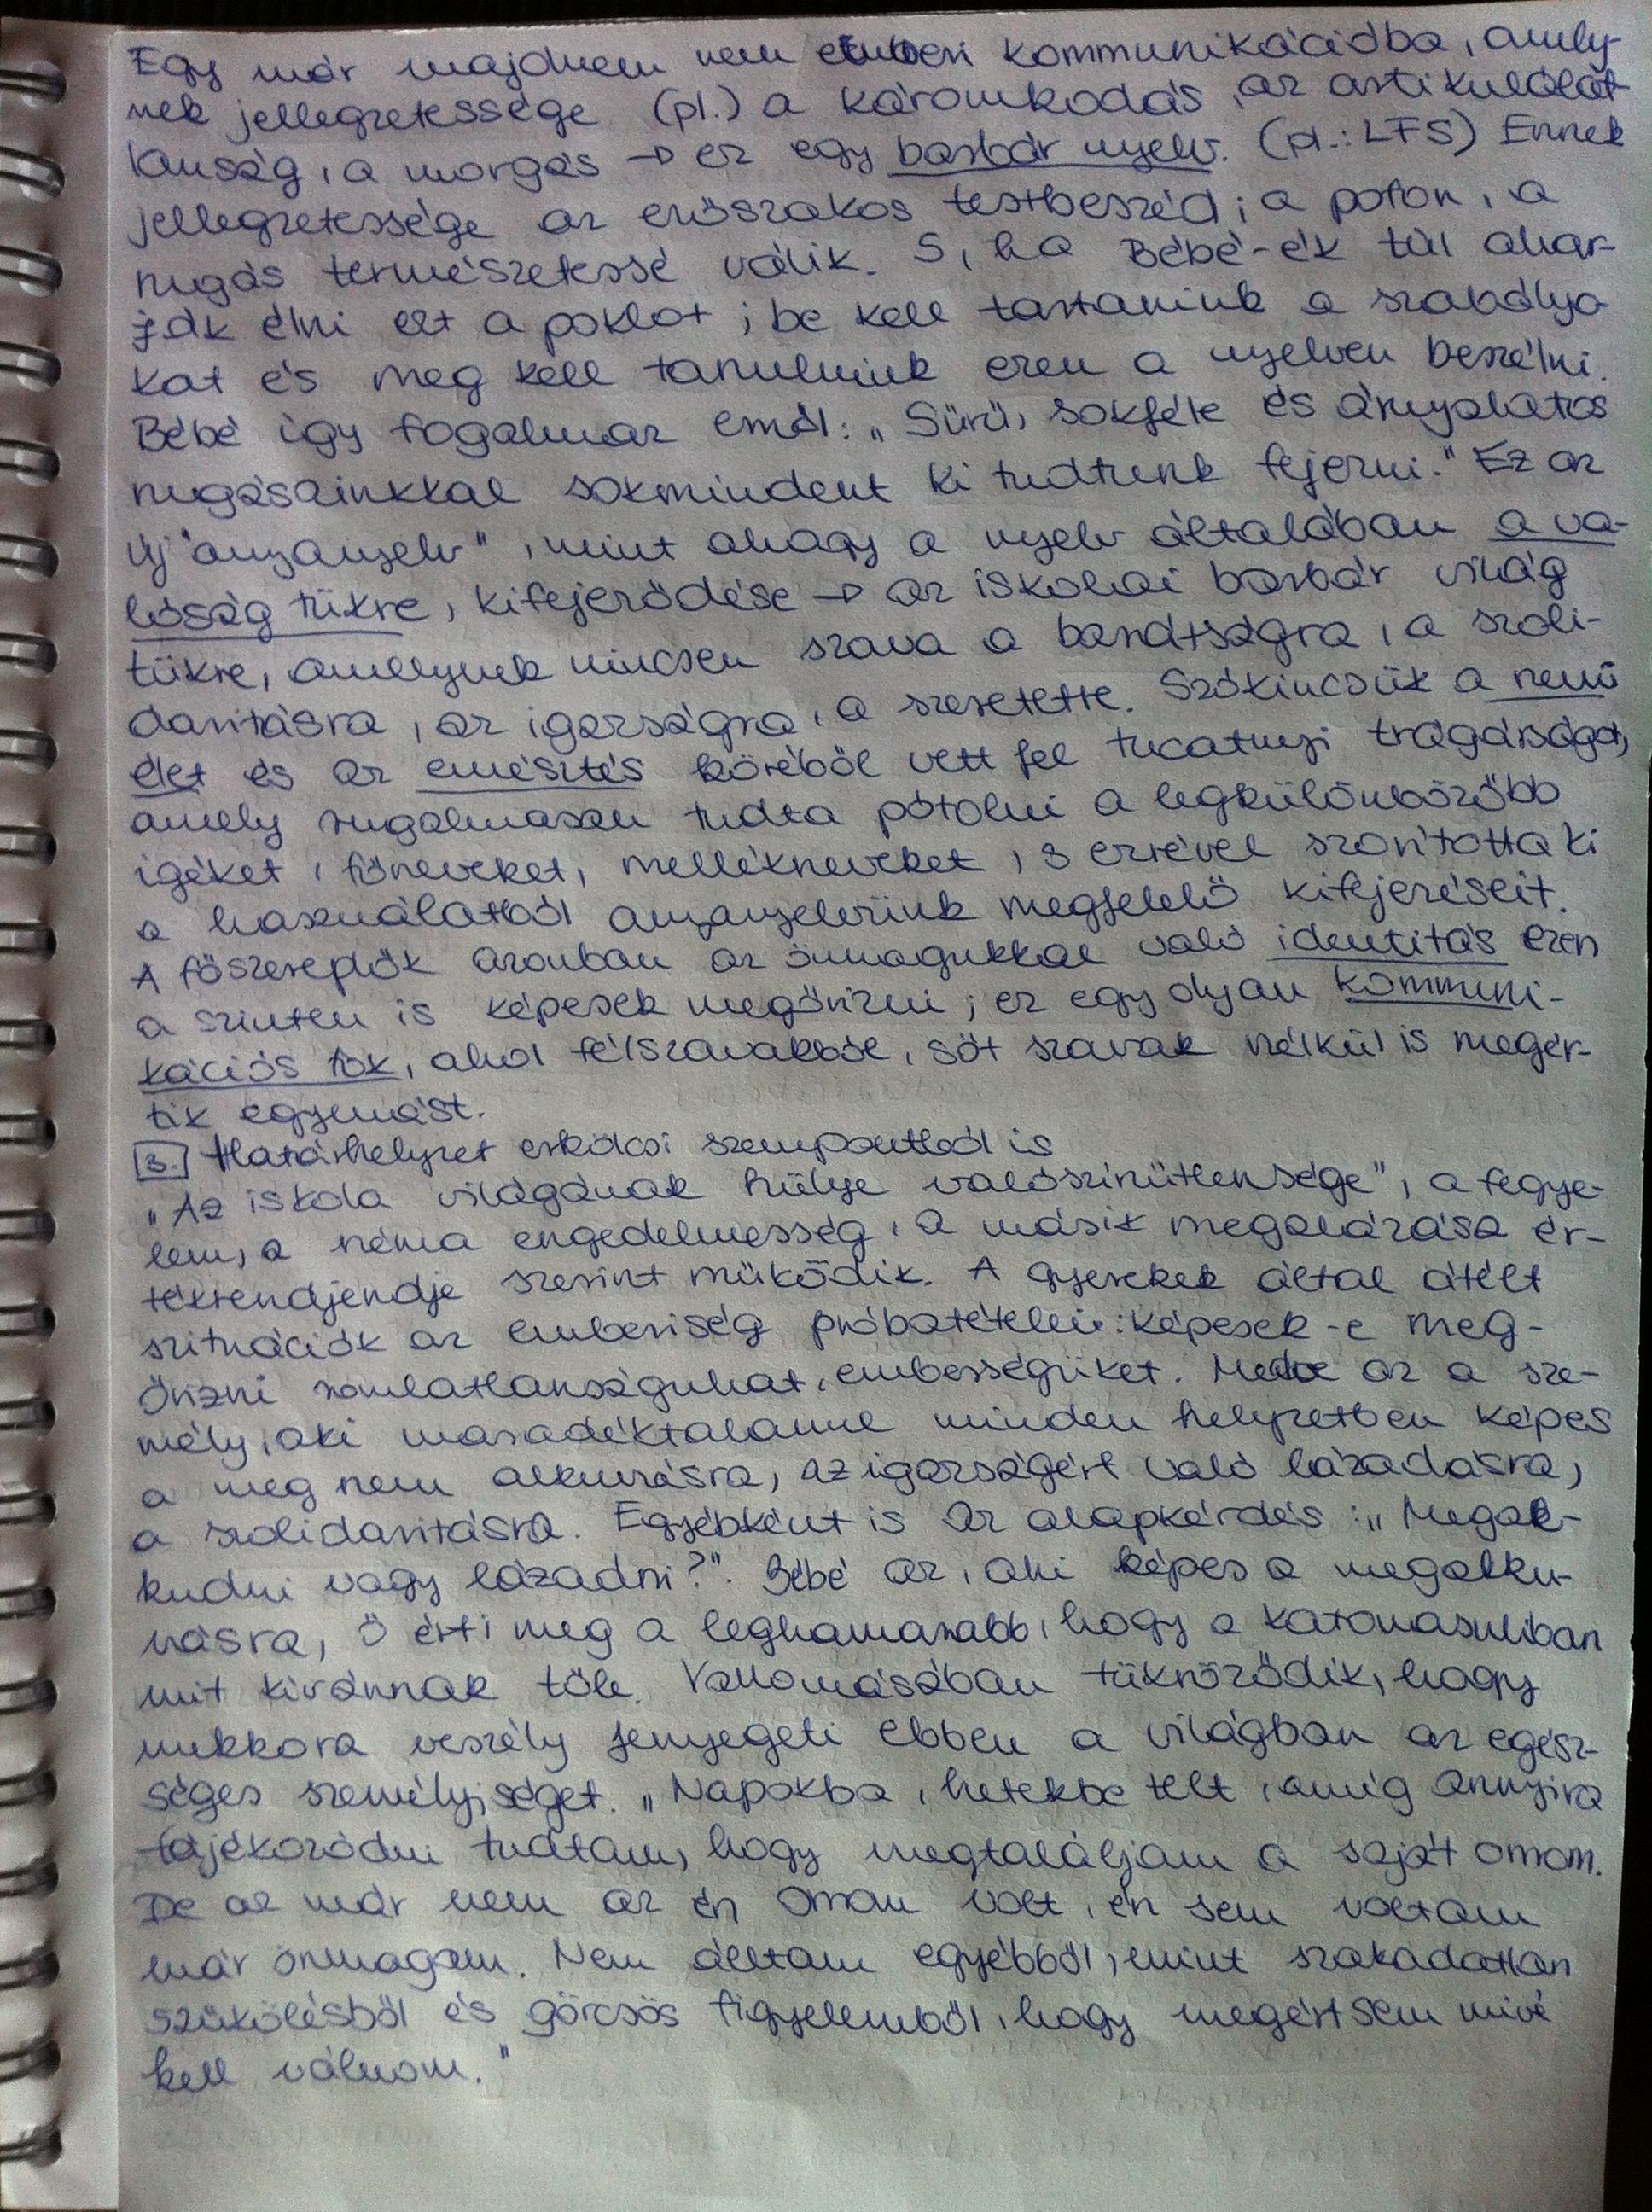 Egy már majdnem nem emberi kommunikációba, amely-
nek jellegzetessége (pl.) a káromkodás, az artikulálat
lanság, a morgás → ez egy barbár nyelv. (pl.: LFS) Ennek
jellegzetessége az erőszakos testbeszéd; a pofon, a
rugás természetessé válik. S, ha Bébé-ék túl akar-
ják élni ezt a poklot; be kell tartaniuk a szabályo
kat és meg kell tanulniuk ezen a nyelven beszélni.
Bébé így fogalmaz erről: „Sűrű, sokféle és árnyalatos
rugásainkkal sokmindent ki tudtunk fejezni." Ez az
új "anyanyelv", mint ahogy a nyelv általában a va-
lóság tükre, kifejeződése → az iskolai barbár világ
tükre, amelynek nincsen szava a barátságra, a szoli-
daritásra, az igazságra, a szeretetre. Szókincsük a nemi
élet és az emésztés köréből vett fel tucatnyi trágárságot,
amely rugalmasan tudta pótolni a legkülönbözőbb
igéket, főneveket, mellékneveket, s ezzével szorította ki
a használatból anyanyelvünk megfelelő kifejezéseit.
A főszereplők azonban az önmagukkal való identitás ezen
a szinten is képesek megőrizni; ez egy olyan kommuni-
kációs fok, ahol félszavakból, sőt szavak nélkül is megér-
tik egymást.
3. Határhelyzet erkölcsi szempontból is
„Az iskola világának hülye valószínűtlensége", a fegye-
lem, a néma engedelmesség, a másik megalázása ér-
tékrendjendje szerint működik. A gyerekek által átélt
szituációk az emberiség próbatételei: képesek-e meg-
őrizni romlatlanságukat, emberségüket. Medve az a sze-
mély, aki maradéktalanul minden helyzetben képes
a meg nem alkuvásra, az igazságért való lázadásra,
a szolidaritásra. Egyébként is az alapkérdés: „Megal-
kudni vagy lázadni?". Bébé az, aki képes a megalku-
vásra, ő érti meg a leghamarabb, hogy a katonasuliban
mit kívánnak tőle. Vallomásában tükröződik, hogy
mekkora veszély fenyegeti ebben a világban az egész-
séges személyiséget. „Napokba, hetekbe telt, amíg annyira
tájékozódni tudtam, hogy megtaláljam a saját orrom.
De az már nem az én orrom volt, én sem voltam
már önmagam. Nem álltam egyébből, mint szakadatlan
szűkölésből és görcsös figyelemből, hogy megértsem mivé
kell válnom."